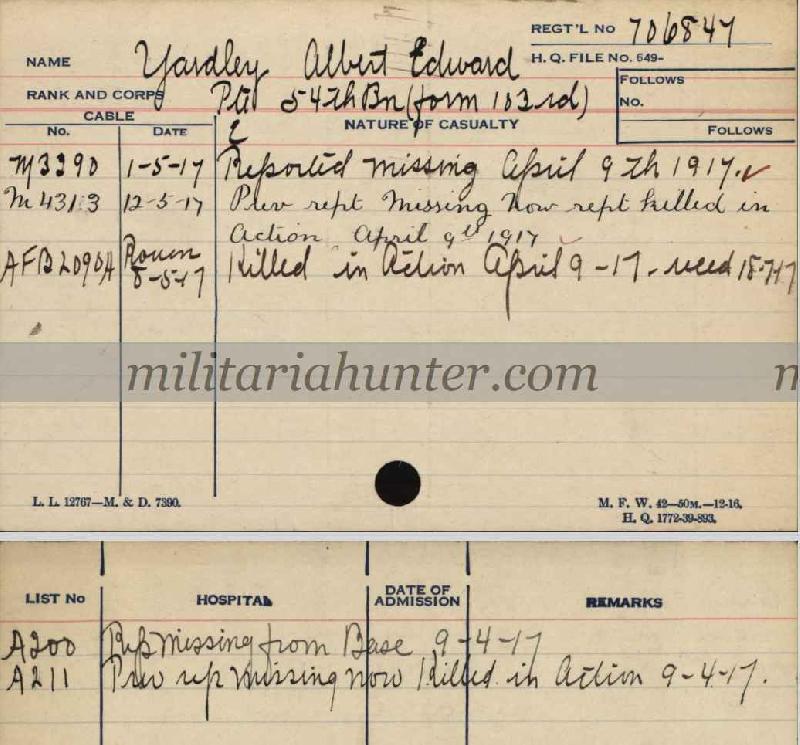 REGT'L No 706847
NAME Yardley Albert Edward
H. Q. FILE NO. 649-
RANK AND CORPS Pte 54th Bn (form 103rd)
FOLLOWS
NO.
FOLLOWS
CABLE
NATURE OF CASUALTY
No. DATE
M3390 1-5-17 Reported missing April 9th 1917.
M4313 12-5-17 Prev rept Missing Now rept killed in
Action April 9th 1917
AFB2090A Rouen 8-5-17 Killed in Action April 9-17-
militariahunter.com m
L. L. 12767—M. & D. 7390.
M. F. W. 42—50M.—12-16.
H. Q. 1772-39-893.
LIST No HOSPITAL DATE OF ADMISSION REMARKS
A200 Rep Missing from Base 9-4-17
A211 Prev rep missing now Killed in Action 9-4-17.